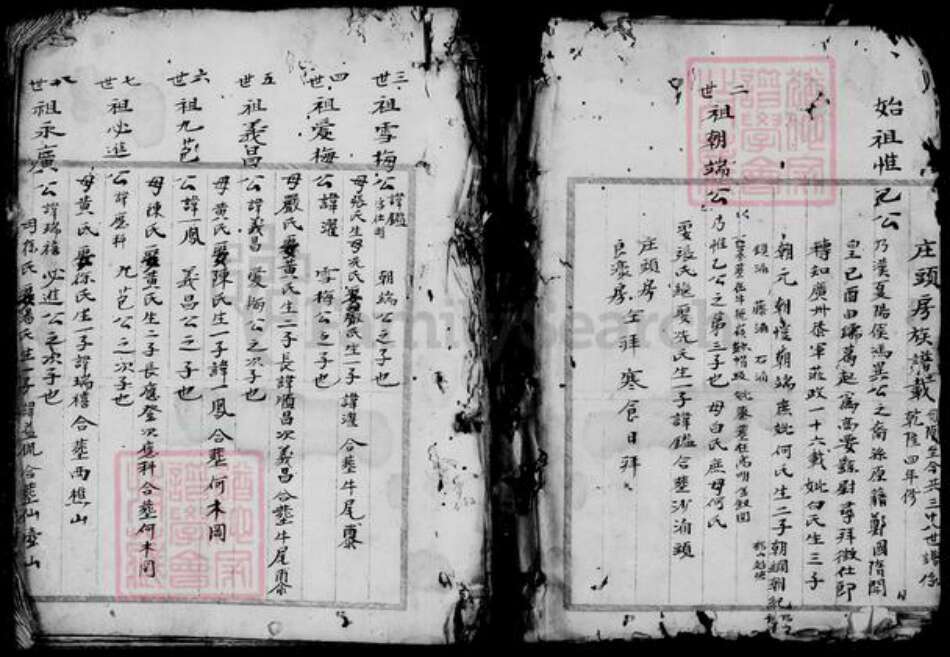 庄頭房族譜載 乾隆四年修
始祖惟乙公 乃漢夏陽侯馮異公之裔孫原籍鄭國隋開
皇己酉由端萬起為高要縣尉尋拜徵仕郎
轉知廣州叅軍蒞政一十六載妣白氏生三子
朝元 朝愷 朝端 庶妣何氏生二子朝綱朝紀
鎮涌 藤涌 石涌
二世祖朝端公 乃惟乙公之第三子也 母白氏庶母何氏
娶張氏繼娶冼氏生一子諱鑑合塟沙涌頭
庄頭房
良濠房 年拜 寒食日拜
三世祖雪梅公 諱鑑 朝端公之子也
母張氏生母冼氏娶嚴氏生一子諱濯 合塟牛尾
四世祖愛梅公 諱濯 雪梅公之子也
母嚴氏娶黃氏生二子長諱順昌次義昌合塟牛尾
五世祖義昌公 諱義昌 愛梅公之次子也
母黃氏娶陳氏生一子諱一鳳合塟何木岡
六世祖九苞公 諱一鳳 義昌公之子也
母陳氏娶黃氏生二子長應登次應科合塟何木岡
七世祖必進公 諱應科 九苞公之次子也
母黃氏娶徐氏生一子諱瑞禧 合塟西樵山
八世祖永廣公 諱瑞禧 必進公之次子也
母徐氏 生一子諱 合塟仙 山
FamilySearch